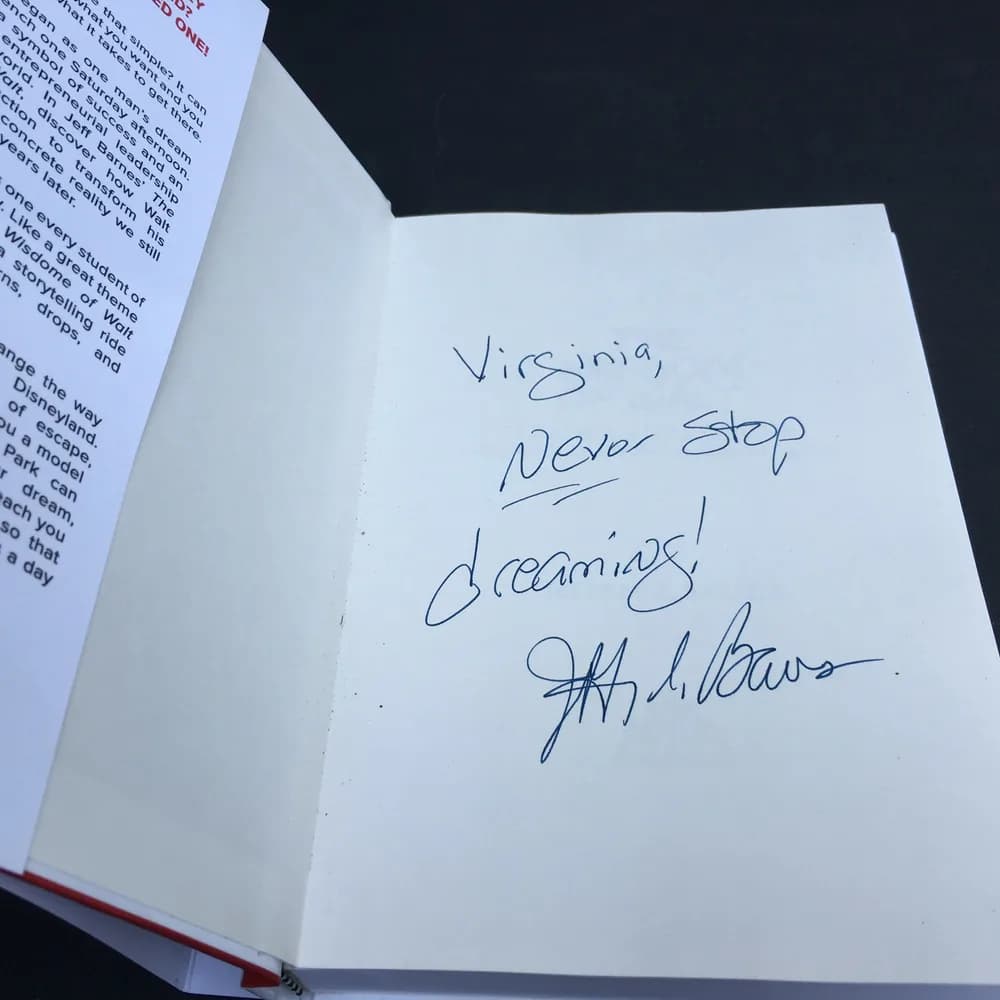 Y
D?
ED ONE!
e that simple? It can
what you want and you
what it takes to get there.
egan as one man's dream
ench one Saturday afternoon.
a symbol of success and an
entrepreneurial leadership
world. In Jeff Barnes' The
Walt, discover how Walt
ction to transform his
concrete reality we still
years later.
one every student of
y. Like a great theme
Wisdome of Walt
a storytelling ride
rns, drops, and
ange the way
Disneyland.
of escape,
ou a model
Park can
r dream,
each you
so that
a day
Virginia,
Never Stop
dreaming!
Jeffrey A. Barnes